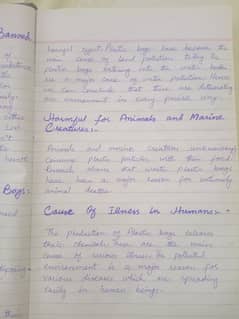 Banned
harmful agent. Plastic bags have become the
main cause of land pollution today. The
plastic bags entering into the water bodies
is a major cause of water pollution. Hence
we can conclude that these are deteriorating
our environment in every possible way.
Harmful for Animals and Marine
Creatures:-
Animals and marine creatures unknowingly
consume plastic particles with their food.
Research shows that waste plastic bags
have been a major reason for untimely
animal deaths.
Bags:-
Cause Of Illness In Humans:-
The production of plastic bags releases
toxic chemicals these are the main
cause of serious illness. The polluted
environment is a major reason for
various diseases which are spreading
easily in human beings.